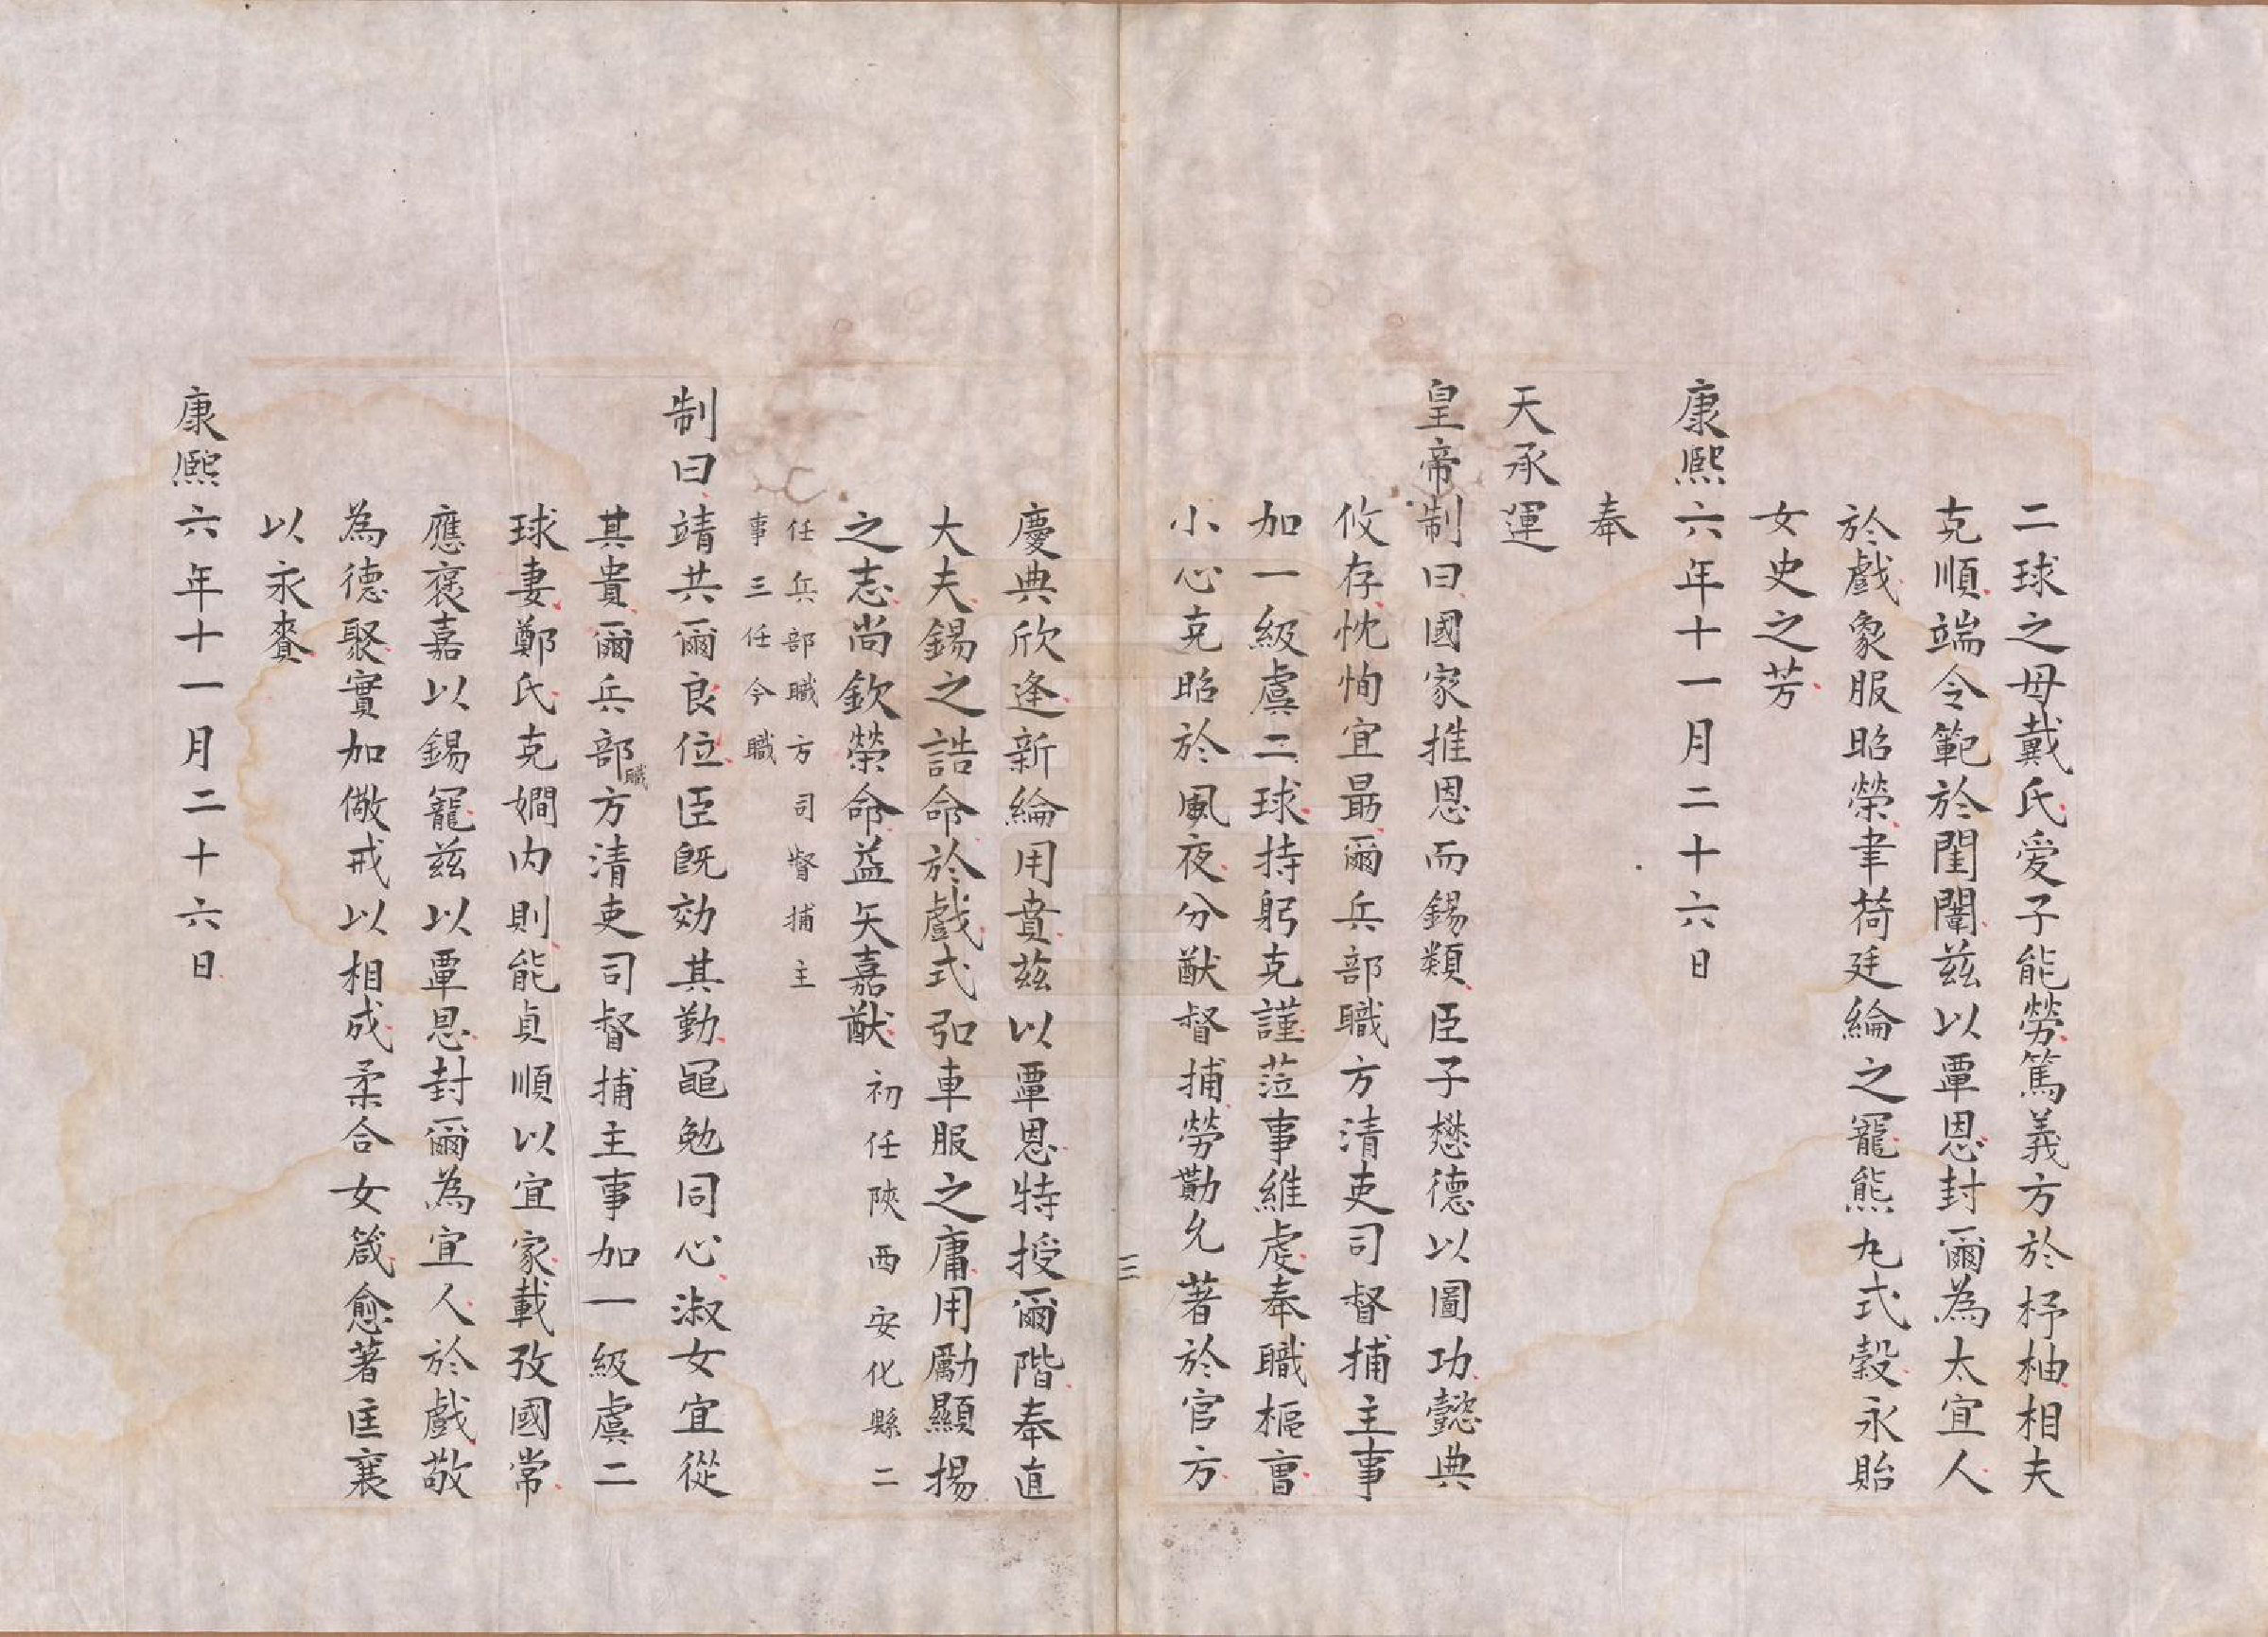 二球之母戴氏爱子能勞篤義方於杼柚相夫
克順端令範於閨闈兹以覃恩封爾為太宜人
於戲象服昭榮聿荷廷綸之寵熊丸式穀永貽
女史之芳
康熙六年十一月二十六日
奉
天承運
皇帝制曰國家推恩而錫類臣子懋德以圖功懿典
攸存忱恂宜最爾兵部職方清吏司督捕主事
加一級虞二球持躬克謹蒞事維虔奉職樞曹
小心克昭於風夜分猷督捕勞勩允著於官方
三
慶典欣逢新綸用賁兹以覃恩特授爾階奉直
大夫錫之誥命於戲式弘車服之庸用勵顯揚
之志尚欽榮命益矢嘉猷 初任陝西安化縣二
任兵部職方司督捕主
事三任今職
制曰靖共爾良位臣既効其勤黽勉同心淑女宜從
其貴爾兵部職方清吏司督捕主事加一級虞二
球妻鄭氏克嫺内則能貞順以宜家載孜國常
應褒嘉以錫寵兹以覃恩封爾為宜人於戲敬
為德聚實加儆戒以相成柔合女箴愈著匡襄
以永賚
康熙六年十一月二十六日